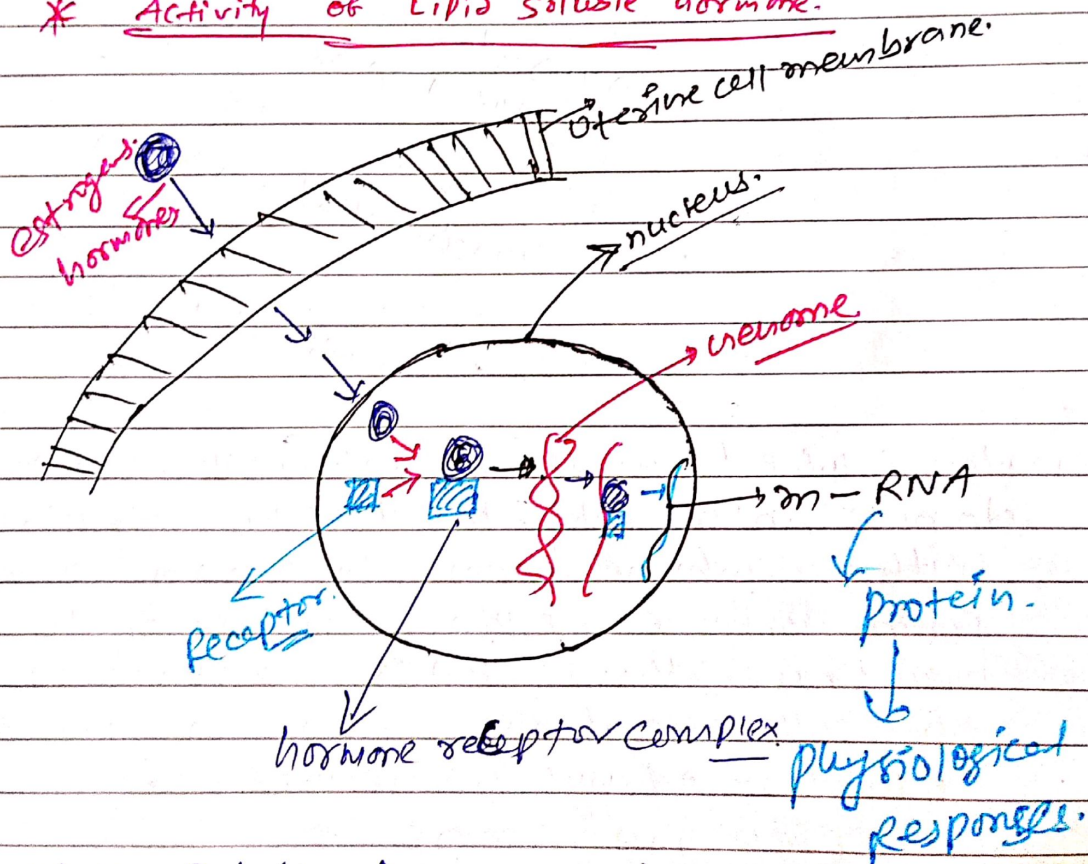 * Activity of Lipid soluble hormone.
Uterine cell membrane.
estrogens
hormones
nucleus.
Genome
m-RNA
Protein.
Receptor.
hormone receptor complex
physiological
Responses.